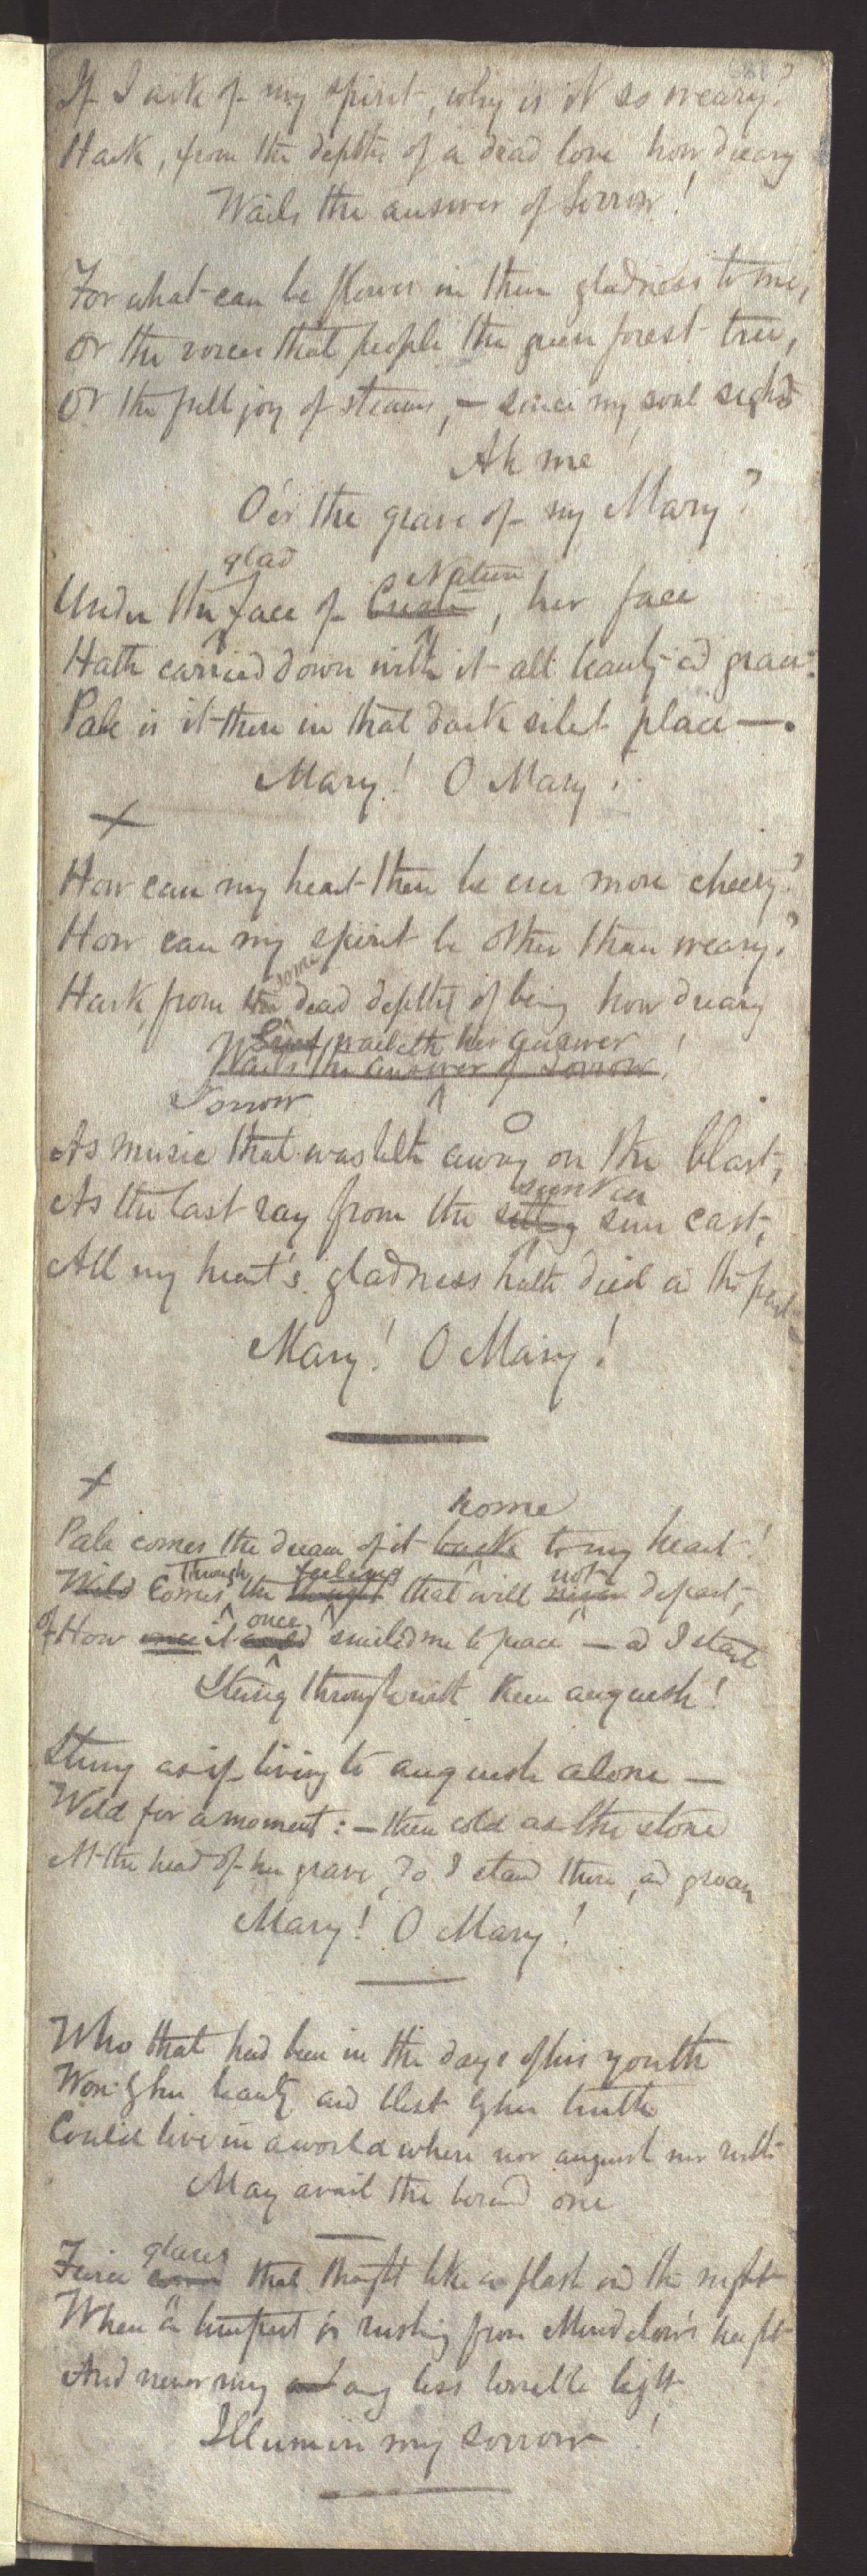 If I ask of my spirit, why is it so weary?
Hark, from the depths of a dead love how dreary
Wails the answer of Sorrow!
For what can be flowers in their gladness to me,
Or the voices that people the green forest tree,
Or the full joy of streams, – since my soul sighs
Ah me!
O'er the grave of my Mary?
glad Nature
Under the face of Creation, her face
Hath carried down with it all beauty and grace:
Pale is it there in that dark silent place —.
Mary! O Mary!
+
How can my heart then be ever more cheery?
How can my spirit be other than weary?
some
Hark, from the dead depths of being how dreary
Grief waileth her answer!
Wails the answer of Sorrow!
Sorrow
As music that wasteth away on the blast,
sunken
As the last ray from the setting sun cast,
All my heart's gladness hath died in the past
Mary! O Mary!
+
home
Pale comes the dream of it back to my heart!
Through feeling not
Wild Comes the thought that will never depart,
of once
How once it could smiled me to peace – and I start
Stung through with keen anguish!
Stung as if living to anguish alone —
Wild for a moment: – then cold as the stone
At the head of her grave, do I stand there, and groan
Mary! O Mary!
Who that had been in the days of his youth
Won by her beauty and blest by her truth
Could live in a world where nor anguish nor ruth
May avail the buried one
glares
Fierce that thought like a flash in the night
When a tempest is rushing from height
And never may any less terrible light
Illumin my sorrow!